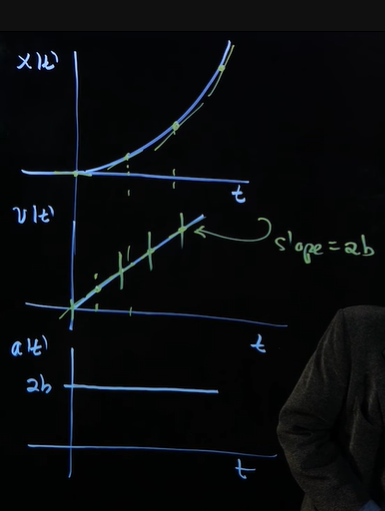 x(t)
t
v(t)
slope = 2b
t
a(t)
2b
t